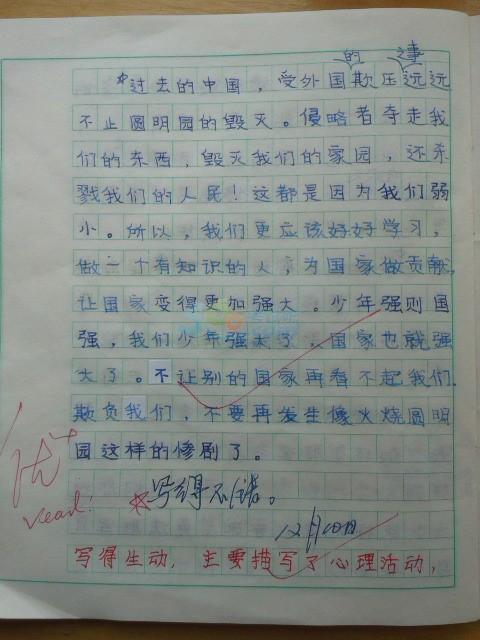 的 之事
过去的中国，受外国欺压远远
不止圆明园的毁灭。侵略者夺走我
们的东西，毁灭我们的家园，还杀
戮我们的人民！这都是因为我们弱
小。所以，我们更应该好好学习，
做一个有知识的人，为国家做贡献，
让国家变得更加强大。少年强则国
强，我们少年强大了，国家也就强
大了。不让别的国家再看不起我们，
欺负我们，不要再发生像火烧圆明
园这样的惨剧了。
优+
写得不错。
12月10日
写得生动，主要描写了心理活动，